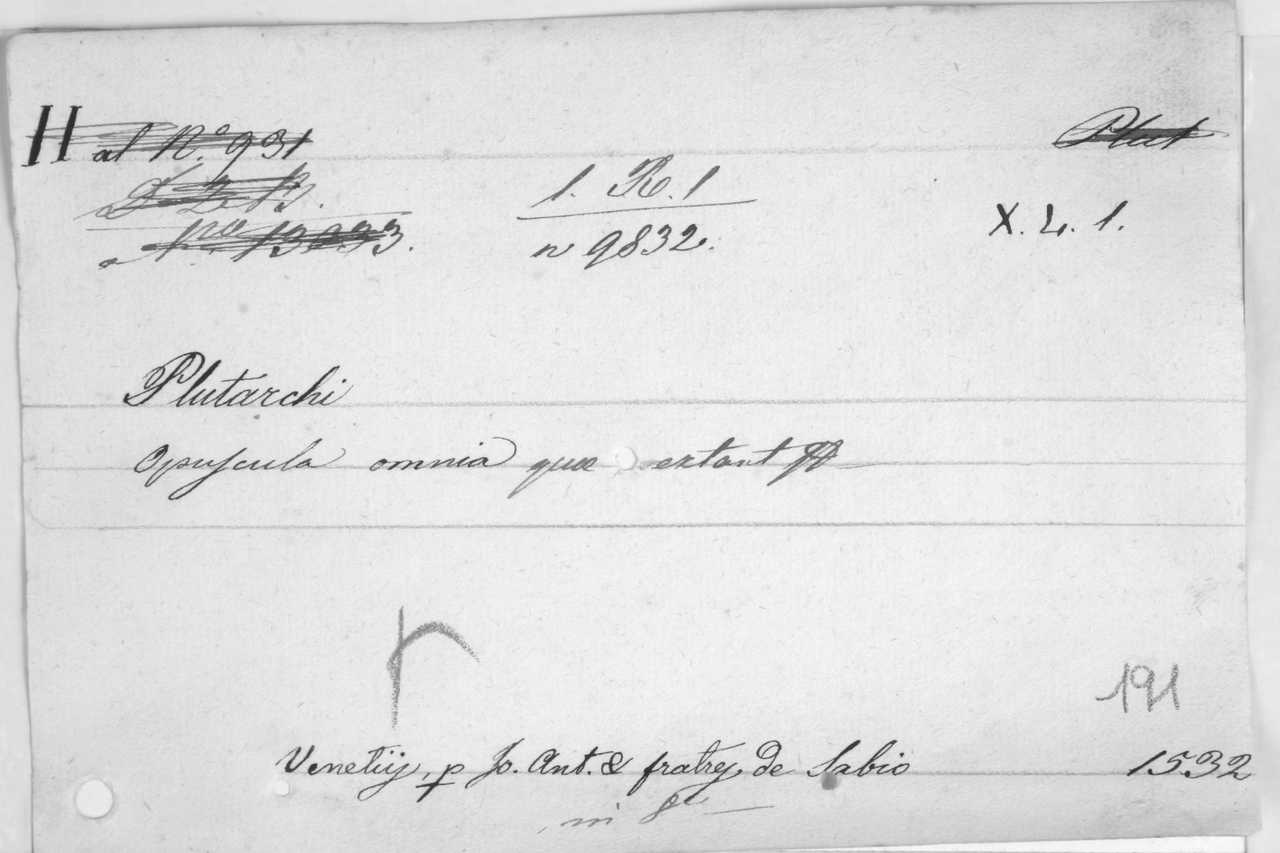 H al N.º 931
Plut
1. R. 1
X. L. 1.
nº 13033.
n 9832.
Plutarchi
opuscula omnia quæ extant
r
191
Venetijs, p Jo. Ant. & fratres de Sabio 1532
in 8º